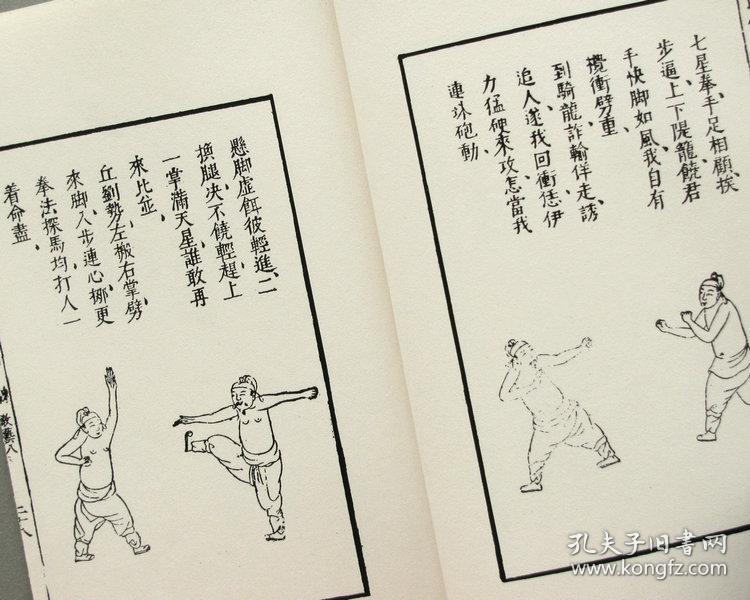 七星拳、手足相顧、挨
步逼上下隄籠、饒君
手快脚如風、我自有
攪衝劈重、
到騎龍詐輸佯走、誘
追人、遂我回衝、恁伊
力猛硬來攻、怎當我
連珠砲動、
懸脚虛餌彼輕進、二
換腿、决不饒輕、趕上
一掌滿天星、誰敢再
來比並、
丘劉勢左搬右掌、劈
來脚入步連心、挪更
拳法探馬均打人一
着命盡、
孔夫子旧书网
www.kongfz.com